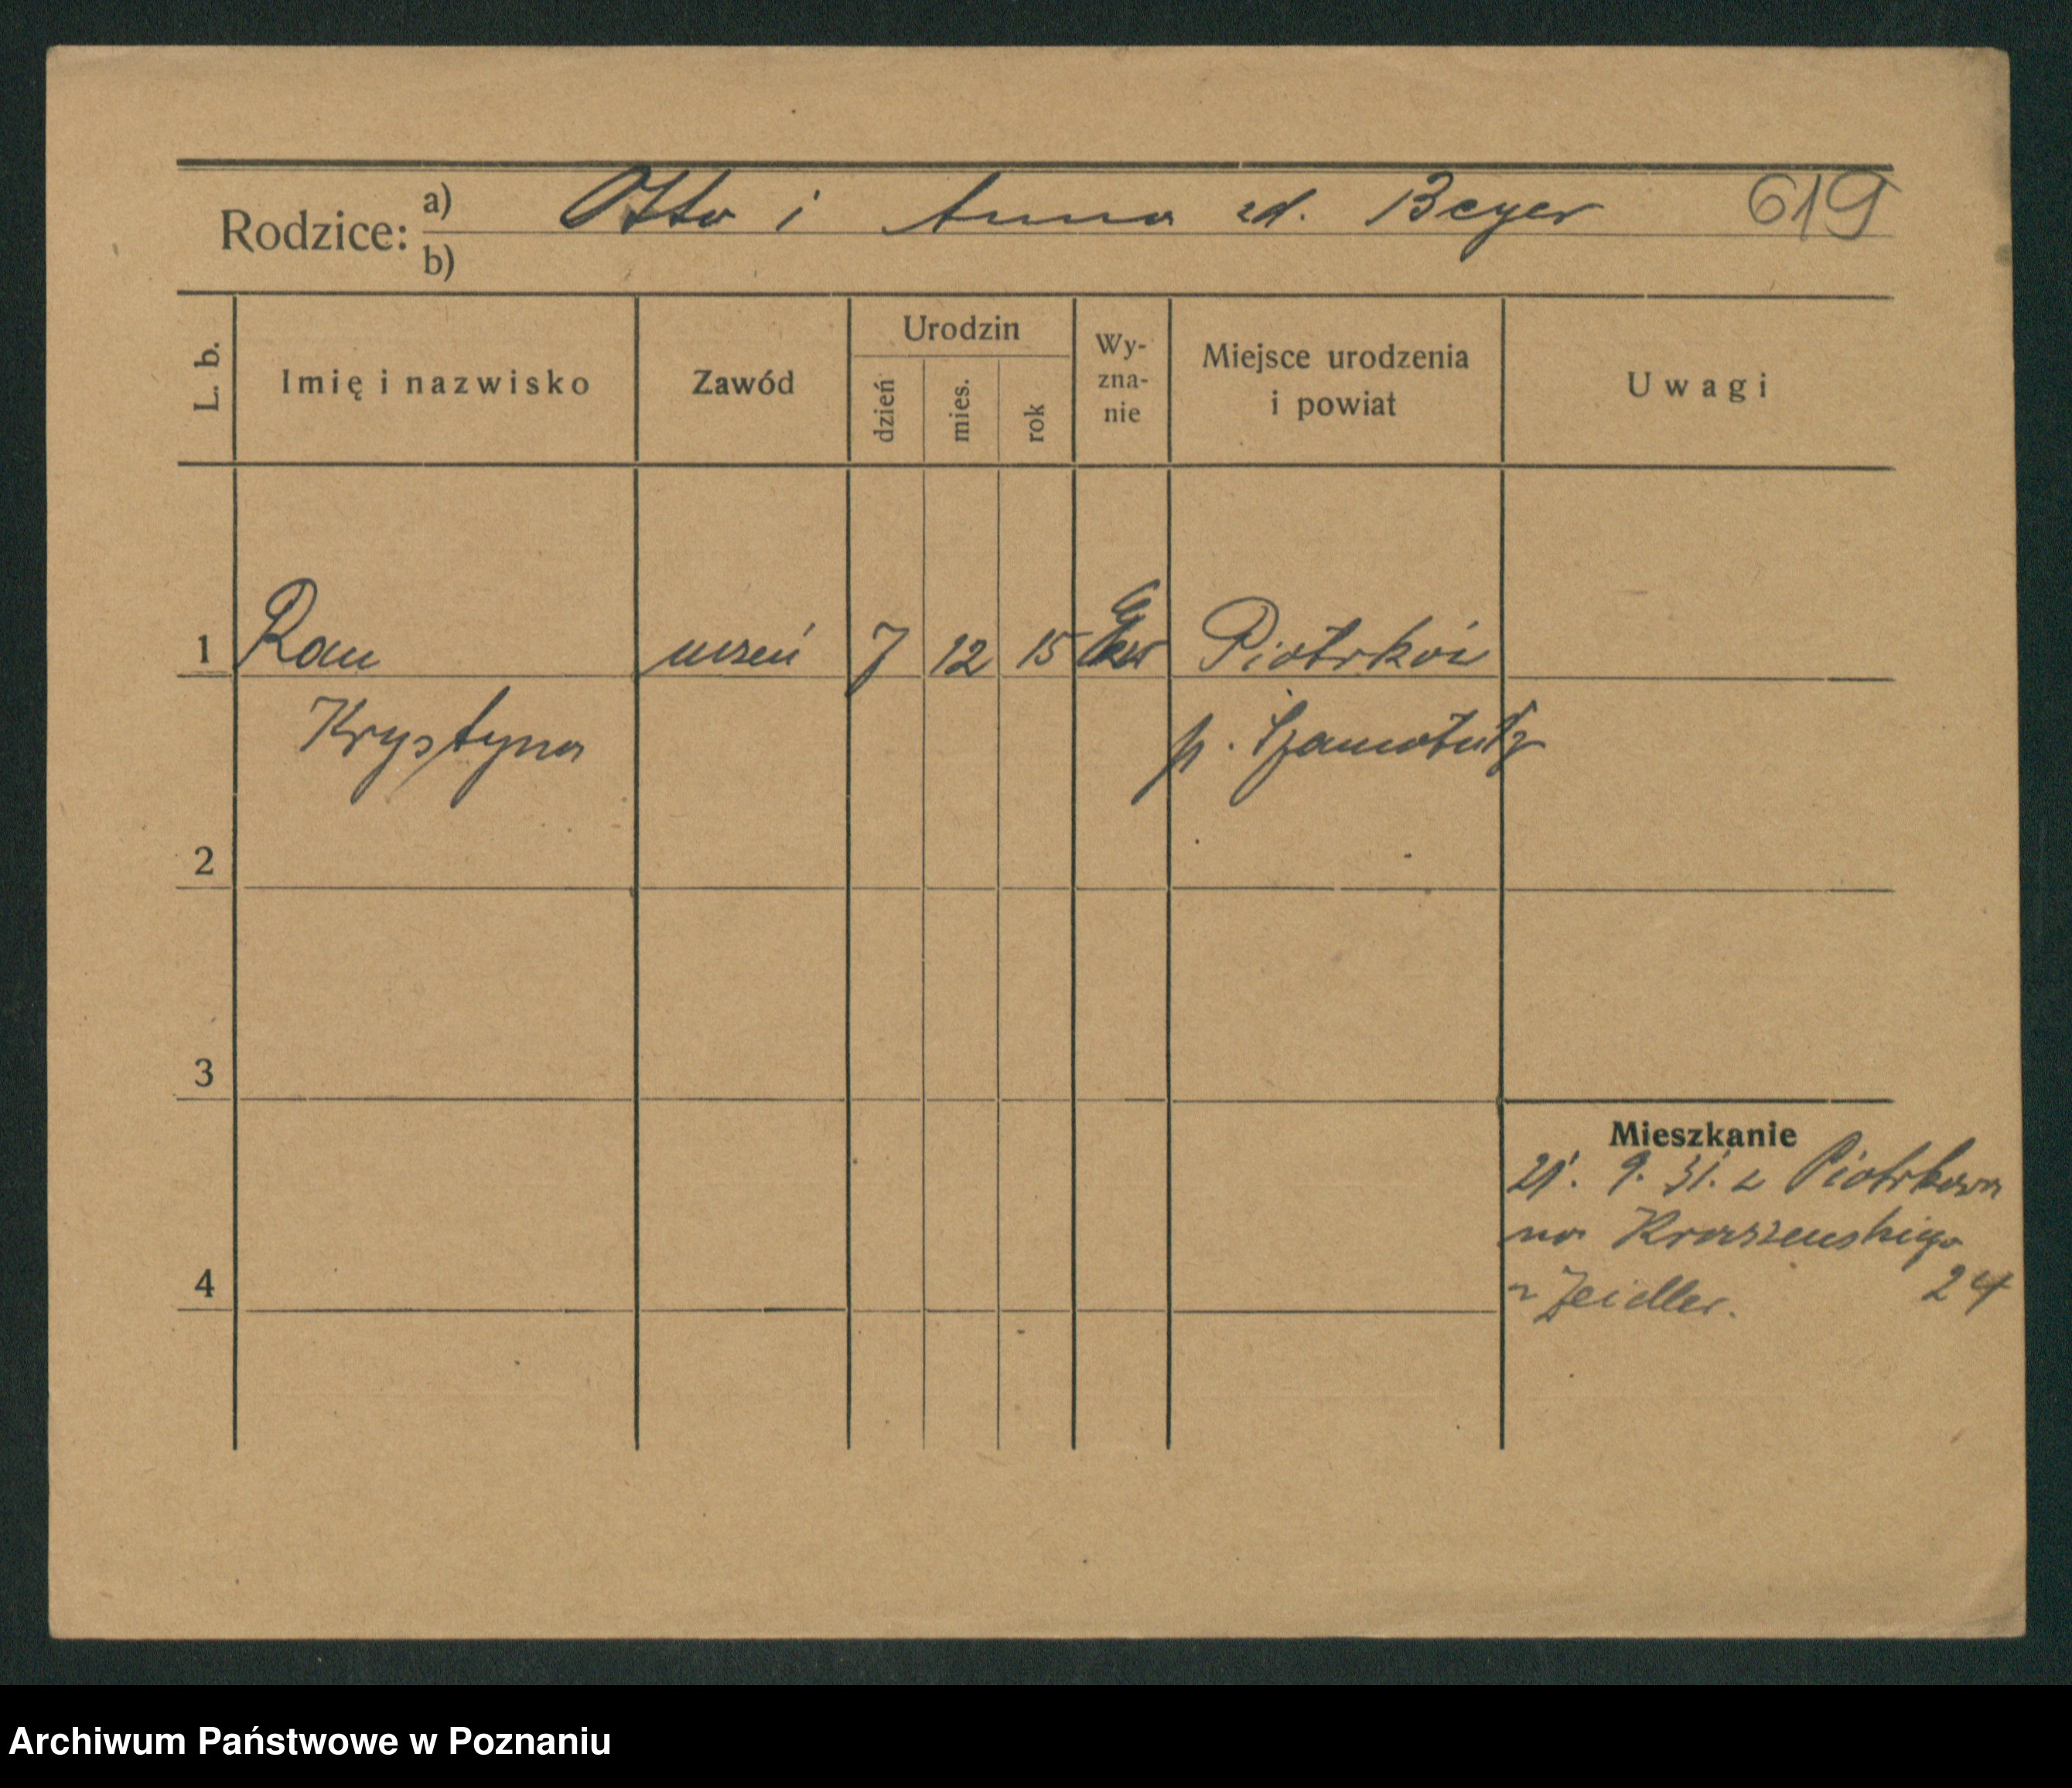 Rodzice: a) Otto i Anna zd. Beyer 619
b)
L. b. Imię i nazwisko Zawód Urodzin dzień mies. rok Wy-zna-nie Miejsce urodzenia i powiat Uwagi
1 Rau uczeń 7 12 15 Piotrków
Krystyna p. Szamotuły
2
3
Mieszkanie
21. 9. 31. z Piotrkowa
na Kraszewskiego
4 Zeidler. 24
Archiwum Państwowe w Poznaniu